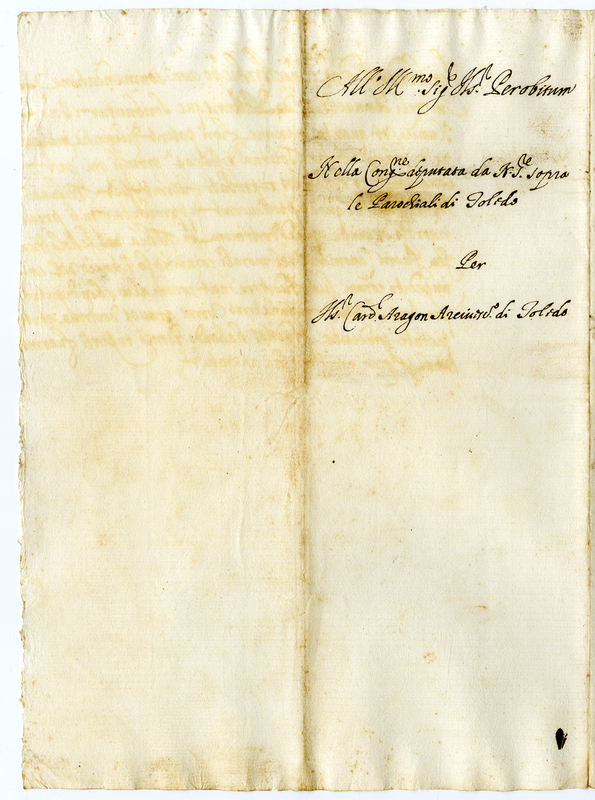 All' Ill.mo Sig.r Mr. Perobitum
Nella Cong.ne deputata da N. S.re sopra
le Parochiali di Toledo
Per
Il S.r Card. Aragon Arciues.o di Toledo